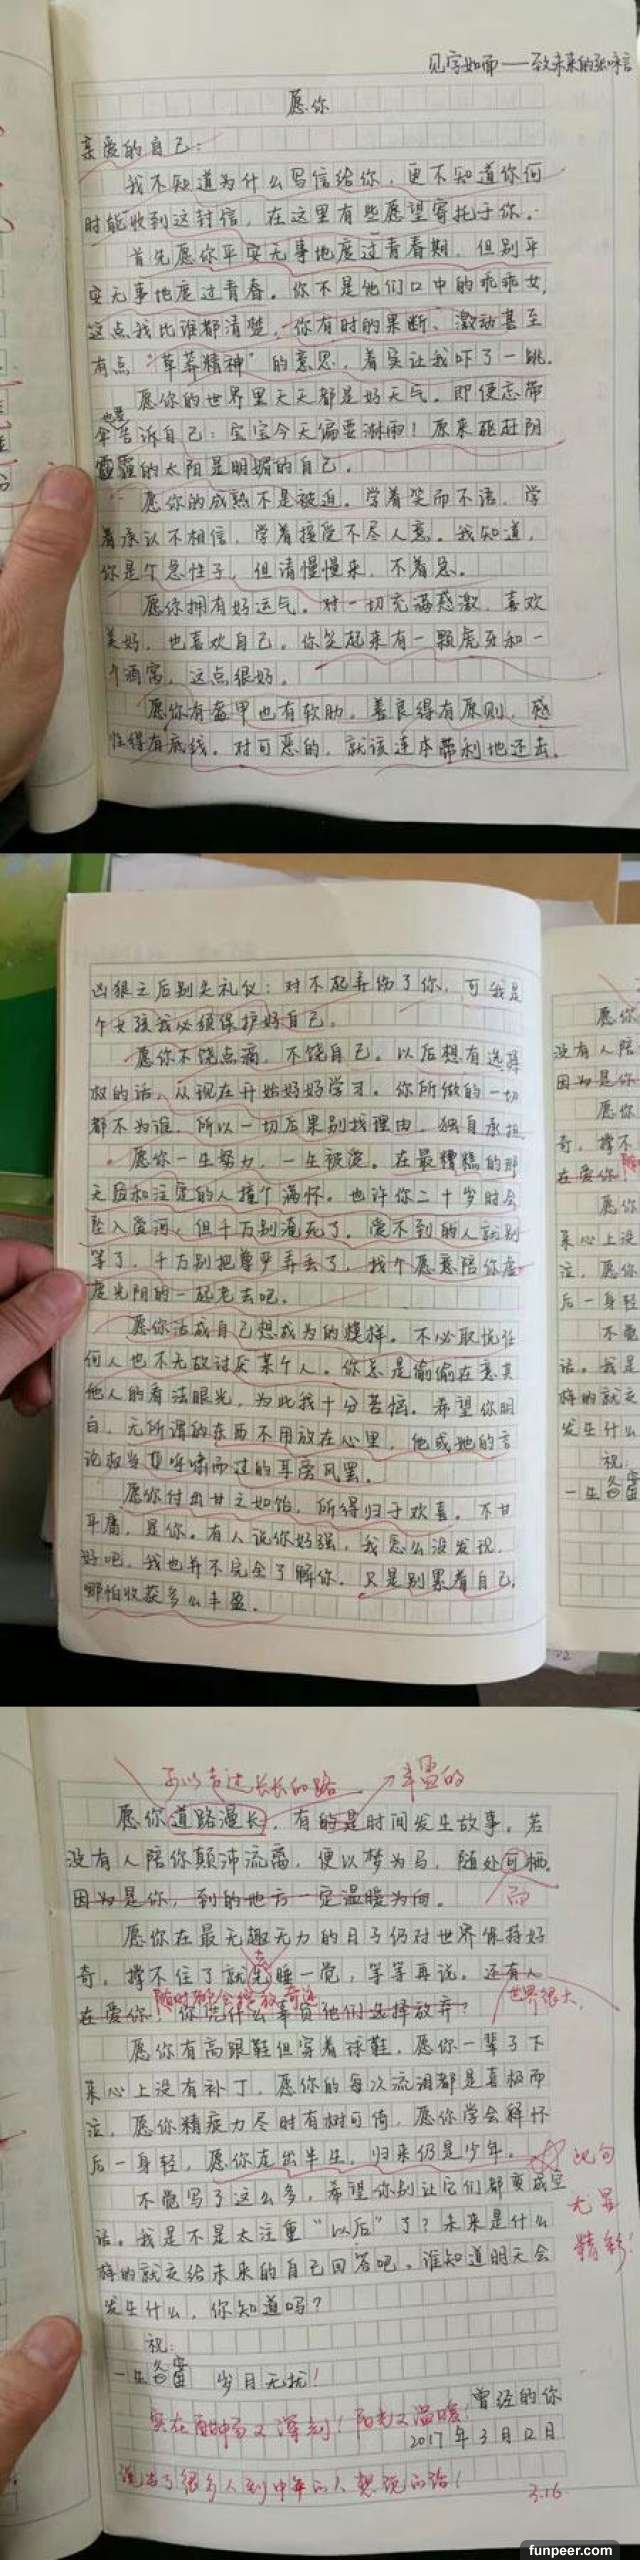 见字如面——致未来的张
愿你
亲爱的自己：
我不知道为什么写信给你，更不知道你何
时能收到这封信，在这里有些愿望寄托于你。
首先愿你平安无事地度过青春期，但别平
安无事地度过青春。你不是他们口中的乖乖女，
这点我比谁都清楚，你有时的果断、激动甚至
有点“草莽精神”的意思，着实让我吓了一跳。
愿你的世界里天天都是好天气。即便忘带
伞也要告诉自己：宝宝今天偏要淋雨！原来驱赶阴
霾的太阳是明媚的自己。
愿你的成熟不是被迫。学着笑而不语，学
着承认不相信，学着接受不尽人意。我知道，
你是个急性子，但请慢慢来，不着急。
愿你拥有好运气。对一切充满感激，喜欢
美好，也喜欢自己。你笑起来有一颗虎牙和一
个酒窝，这点很好。
愿你有盔甲也有软肋。善良得有原则，感
性得有底线。对可恶的，就该连本带利地还去。
凶狠之后别失礼仪：对不起弄伤了你，可我是
个女孩我必须保护好自己。
愿你不饶点滴，不饶自己。以后想有选择
权的话，从现在开始好好学习。你所做的一切
都不为谁，所以一切后果别找理由，独自承担。
愿你一生努力，一生被爱。在最糟糕的那
天质和注定的人撞个满怀。也许你二十岁时会
坠入爱河，但千万别淹死了。爱不到的人就别
等了，千万别把尊严弄丢了，找个愿意陪你虚
度光阴的一起老去吧。
愿你活成自己想成为的模样。不必取悦任
何人也不无故讨厌某个人。你总是偷偷在意其
他人的看法眼光，为此我十分苦恼。希望你明
白，无所谓的东西不用放在心里，他或她的言
论权当耳呼啸而过的耳旁风罢。
愿你付出甘之如饴，所得归于欢喜。不甘
平庸，是你。有人说你好强，我怎么没发现，
好吧，我也并不完全了解你。只是别累着自己，
哪怕收获多么丰盈。
可以走过长长的路
丰盈的
愿你道路漫长，有的是时间发生故事。若
没有人陪你颠沛流离，便以梦为马，随处可栖。
因为是你，到的地方一定温暖为向。
而
愿你在最无趣无力的日子仍对世界保持好
奇，撑不住了就先睡一觉，等等再说。还有人
去
随时都会绽放奇迹
世界很大
在爱你！你凭什么辜负他们选择放弃？
愿你有高跟鞋但穿着球鞋，愿你一辈子下
来心上没有补丁，愿你的每次流泪都是喜极而
泣，愿你精疲力尽时有树可倚，愿你学会释怀
后一身轻，愿你走出半生，归来仍是少年。
此句
尤显
精彩！
不觉写了这么多，希望你别让它们都变成空
话。我是不是太注重“以后”了？未来是什么
样的就交给未来的自己回答吧，谁知道明天会
发生什么，你知道吗？
祝：
一生备蕾 岁月无扰！
曾经的你
2017年3月12日
实在而又深刻！阳光又温暖！
说出了很多人到中年的人想说的话！
3.16
funpeer.com